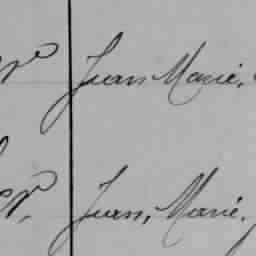 Jean Marie,
Jean, Marie.